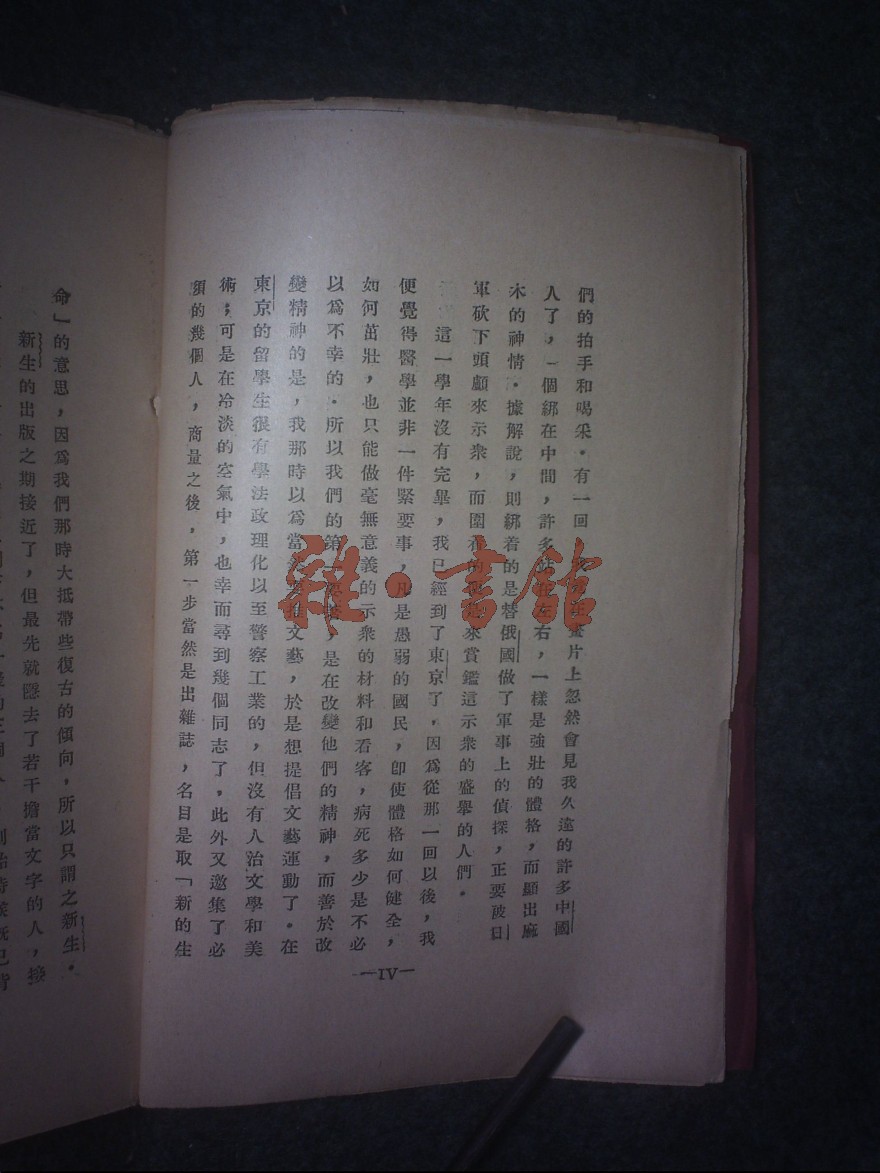 們的拍手和喝采。有一回,我竟在畫片上忽然會見我久違的許多中國
人了,一個綁在中間,許多站在左右,一樣是強壯的體格,而顯出麻
木的神情。據解說,則綁着的是替俄國做了軍事上的偵探,正要被日
軍砍下頭顱來示衆,而圍着的便是來賞鑑這示衆的盛舉的人們。
這一學年沒有完畢,我已經到了東京了,因爲從那一回以後,我
便覺得醫學並非一件緊要事,凡是愚弱的國民,卽使體格如何健全,
如何茁壯,也只能做毫無意義的示衆的材料和看客,病死多少是不必
以爲不幸的。所以我們的第一要著,是在改變他們的精神,而善於改
變精神的是,我那時以爲當然要推文藝,於是想提倡文藝運動了。在
東京的留學生很有學法政理化以至警察工業的,但沒有人治文學和美
術;可是在冷淡的空氣中,也幸而尋到幾個同志了,此外又邀集了必
須的幾個人,商量之後,第一步當然是出雜誌,名目是取「新的生
—IV—
命」的意思,因爲我們那時大抵帶些復古的傾向,所以只謂之新生。
新生的出版之期接近了,但最先就隱去了若干擔當文字的人,接
雜・書館